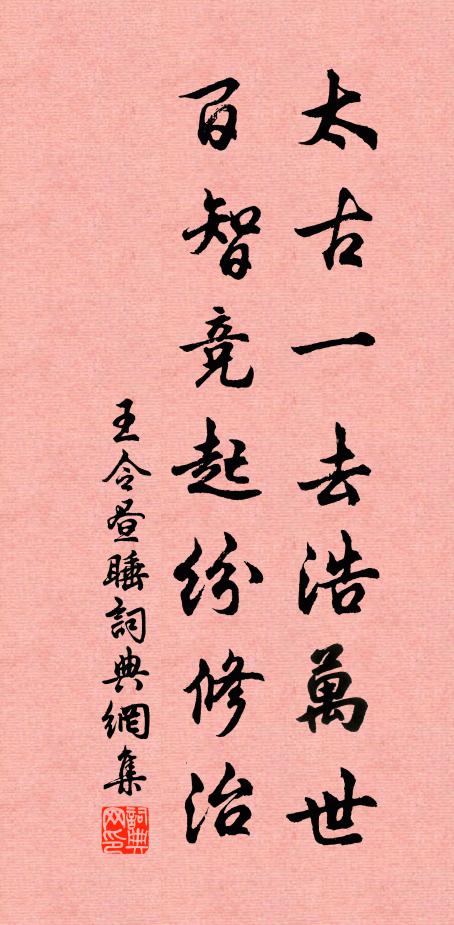 太古一去浩萬世
百智竞起紛修治
王令昼睡詞典網集
詞典网印